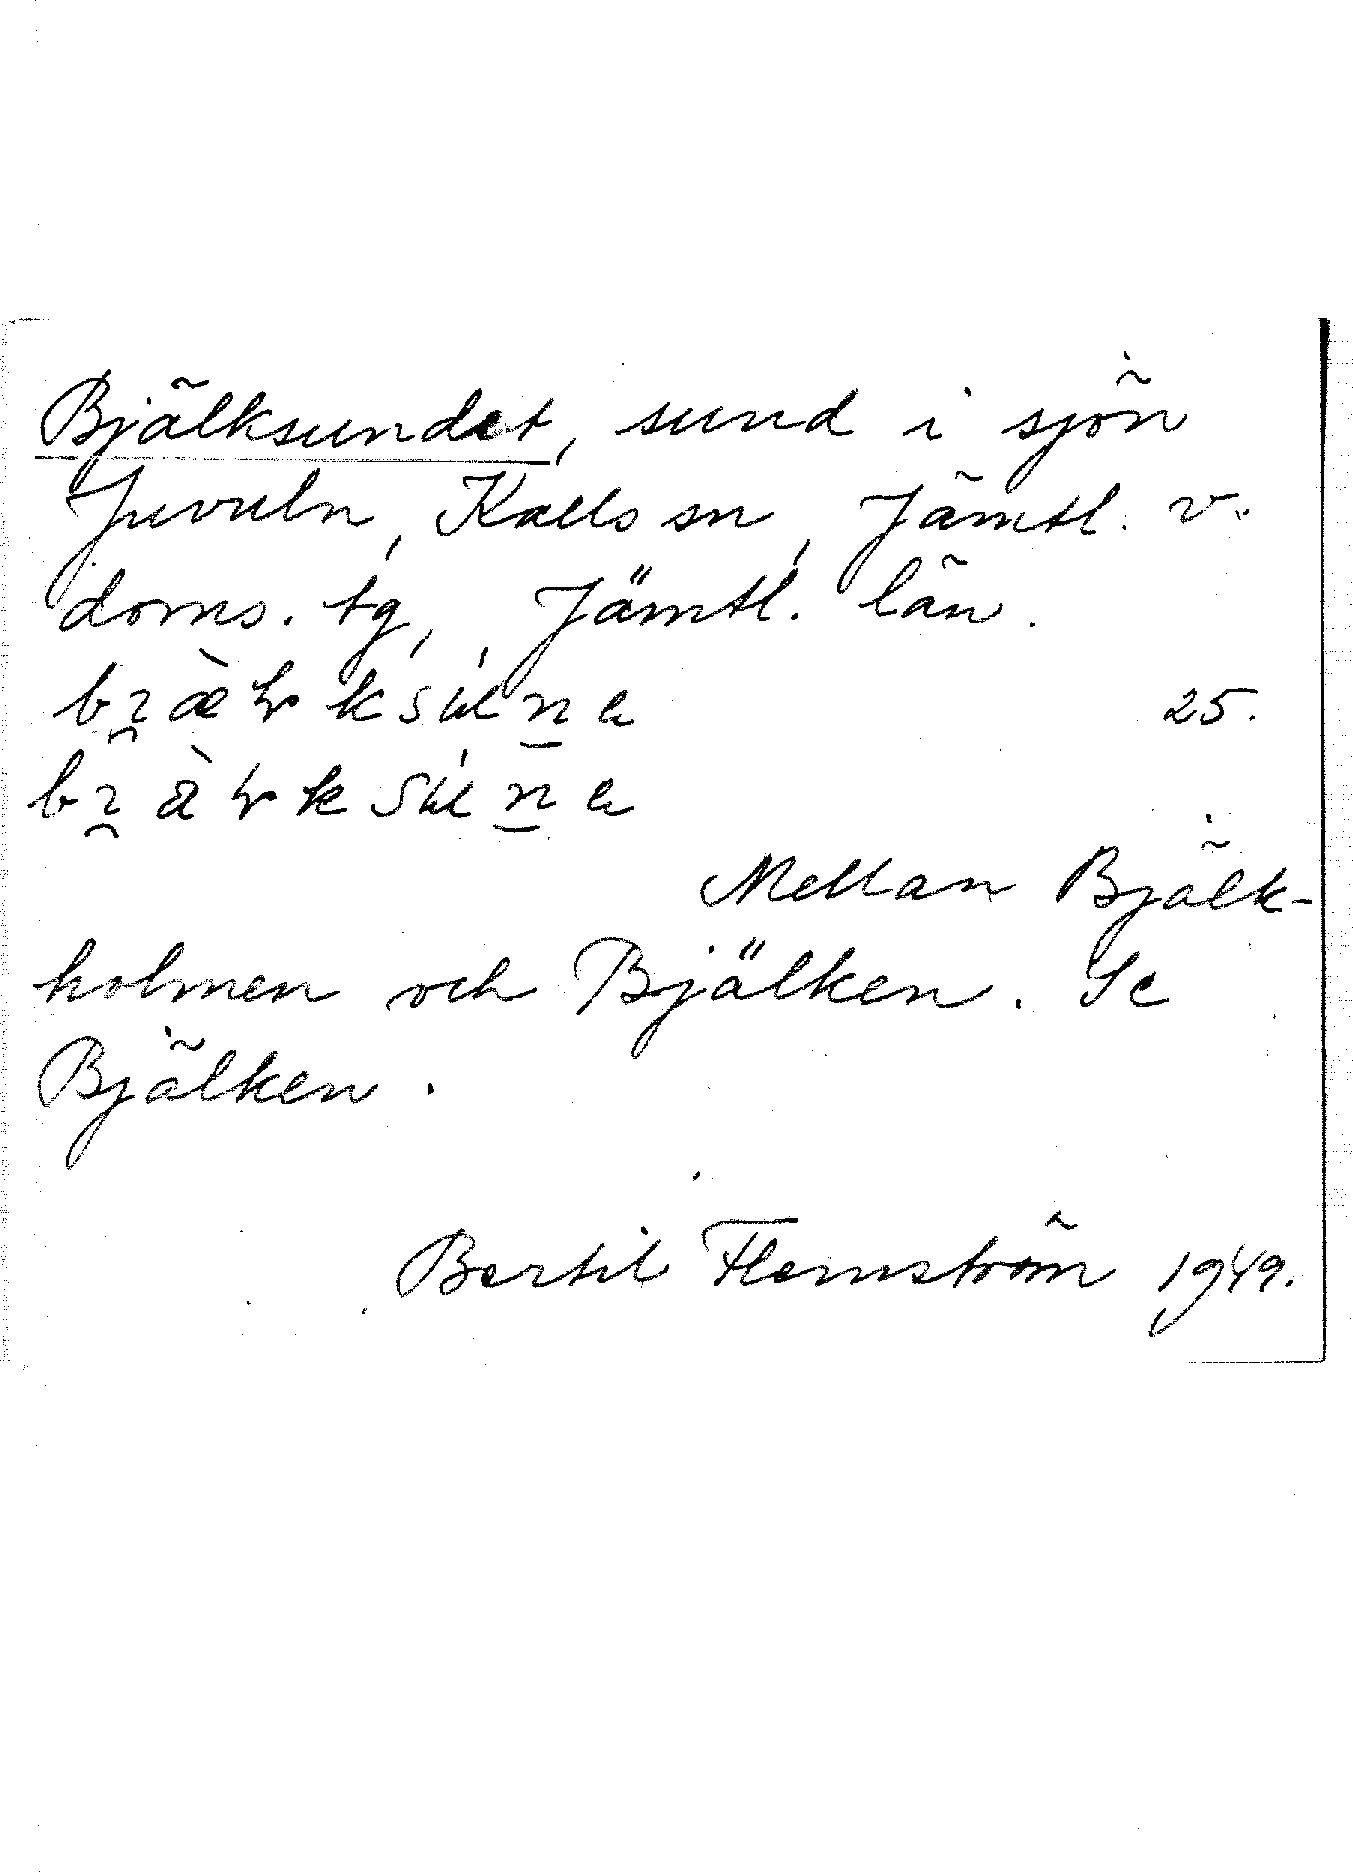 Bjälksundet, sund i sjön
Juvuln, Kalls sn, Jämtl. v.
doms. tg, Jämtl. län.
25.
Mellan Bjälk-
holmen och Bjälken. Se
Bjälken.
Bertil Flemström 1949.